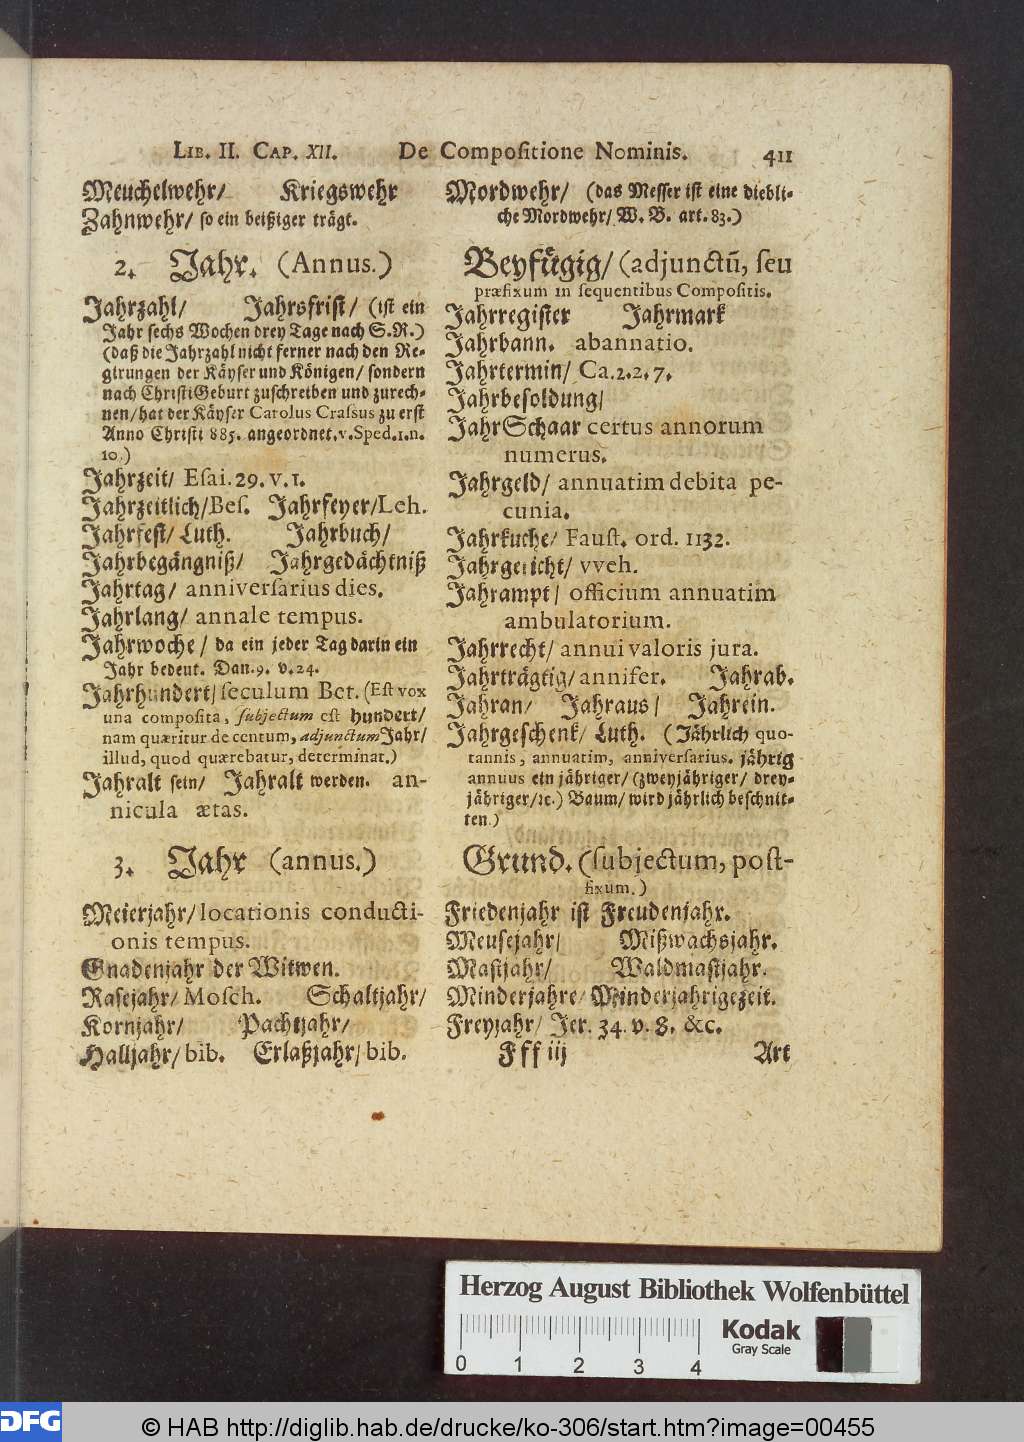 LIB. II. CAP. XII. De Compoſitione Nominis. 411
Meuchelwehr/ Kriegswehr
Zahnwehr/ ſo ein beißiger trägt.
2. Jahr. (Annus.)
Jahrzahl/ Jahrsfriſt/ (iſt ein
Jahr ſechs Wochen drey Tage nach S.R.)
(daß die Jahrzahl nicht ferner nach den Re-
girungen der Käyſer und Königen/ ſondern
nach Chriſti Geburt zuſchreiben und zurech-
nen/ hat der Käyſer Carolus Craſsus zu erſt
Anno Chriſti 885. angeordnet. v. Sped. 1. n.
10.)
Jahrzeit/ Eſai. 29. v. 1.
Jahrzeitlich/ Beſ. Jahrfeyer/ Leh.
Jahrfeſt/ Luth. Jahrbuch/
Jahrbegängniß/ Jahrgedächtniß
Jahrtag/ anniverſarius dies.
Jahrlang/ annale tempus.
Jahrwoche/ da ein jeder Tag darin ein
Jahr bedeut. Dan. 9. v. 24.
Jahrhundert/ ſeculum Bet. (Eſt vox
una compoſita, ſubjectum eſt hundert/
nam quæritur de centum, adjunctum Jahr/
illud, quod quærebatur, determinat.)
Jahralt ſein/ Jahralt werden. an-
nicula ætas.
3. Jahr (annus.)
Meierjahr/ locationis conducti-
onis tempus.
Gnadenjahr der Witwen.
Raſejahr/ Moſch. Schaltjahr/
Kornjahr/ Pachtjahr/
Halljahr/ bib. Erlaßjahr/ bib.
Mordwehr/ (das Meſſer iſt eine diebli-
che Mordwehr/ W. B. art. 83.)
Beyfügig/ (adjunctū, ſeu
præfixum in ſequentibus Compoſitis.
Jahrregiſter Jahrmark
Jahrbann. abannatio.
Jahrtermin/ Ca. 2. 2. 7.
Jahrbeſoldung/
JahrSchaar certus annorum
numerus.
Jahrgeld/ annuatim debita pe-
cunia.
Jahrkuche/ Fauſt. ord. 1132.
Jahrgericht/ vveh.
Jahrampt/ officium annuatim
ambulatorium.
Jahrrecht/ annui valoris jura.
Jahrträgtig/ annifer. Jahrab.
Jahran/ Jahraus/ Jahrein.
Jahrgeſchenk/ Luth. (Jährlich quo-
tannis, annuatim, anniverſarius. jährig
annuus ein jähriger/ (zweyjähriger/ drey-
jähriger/ ꝛc.) Baum/ wird jährlich beſchnit-
ten.)
Grund. (ſubjectum, poſt-
fixum.)
Friedenjahr iſt Freudenjahr.
Meuſejahr/ Mißwachsjahr.
Maſtjahr/ Waldmaſtjahr.
Minderjahre/ Minderjahrigezeit.
Freyjahr/ Jer. 34. v. 8. &c.
Fff iij Art
Herzog August Bibliothek Wolfenbüttel
0 1 2 3 4
Kodak
Gray Scale
DFG
© HAB http://diglib.hab.de/drucke/ko-306/start.htm?image=00455